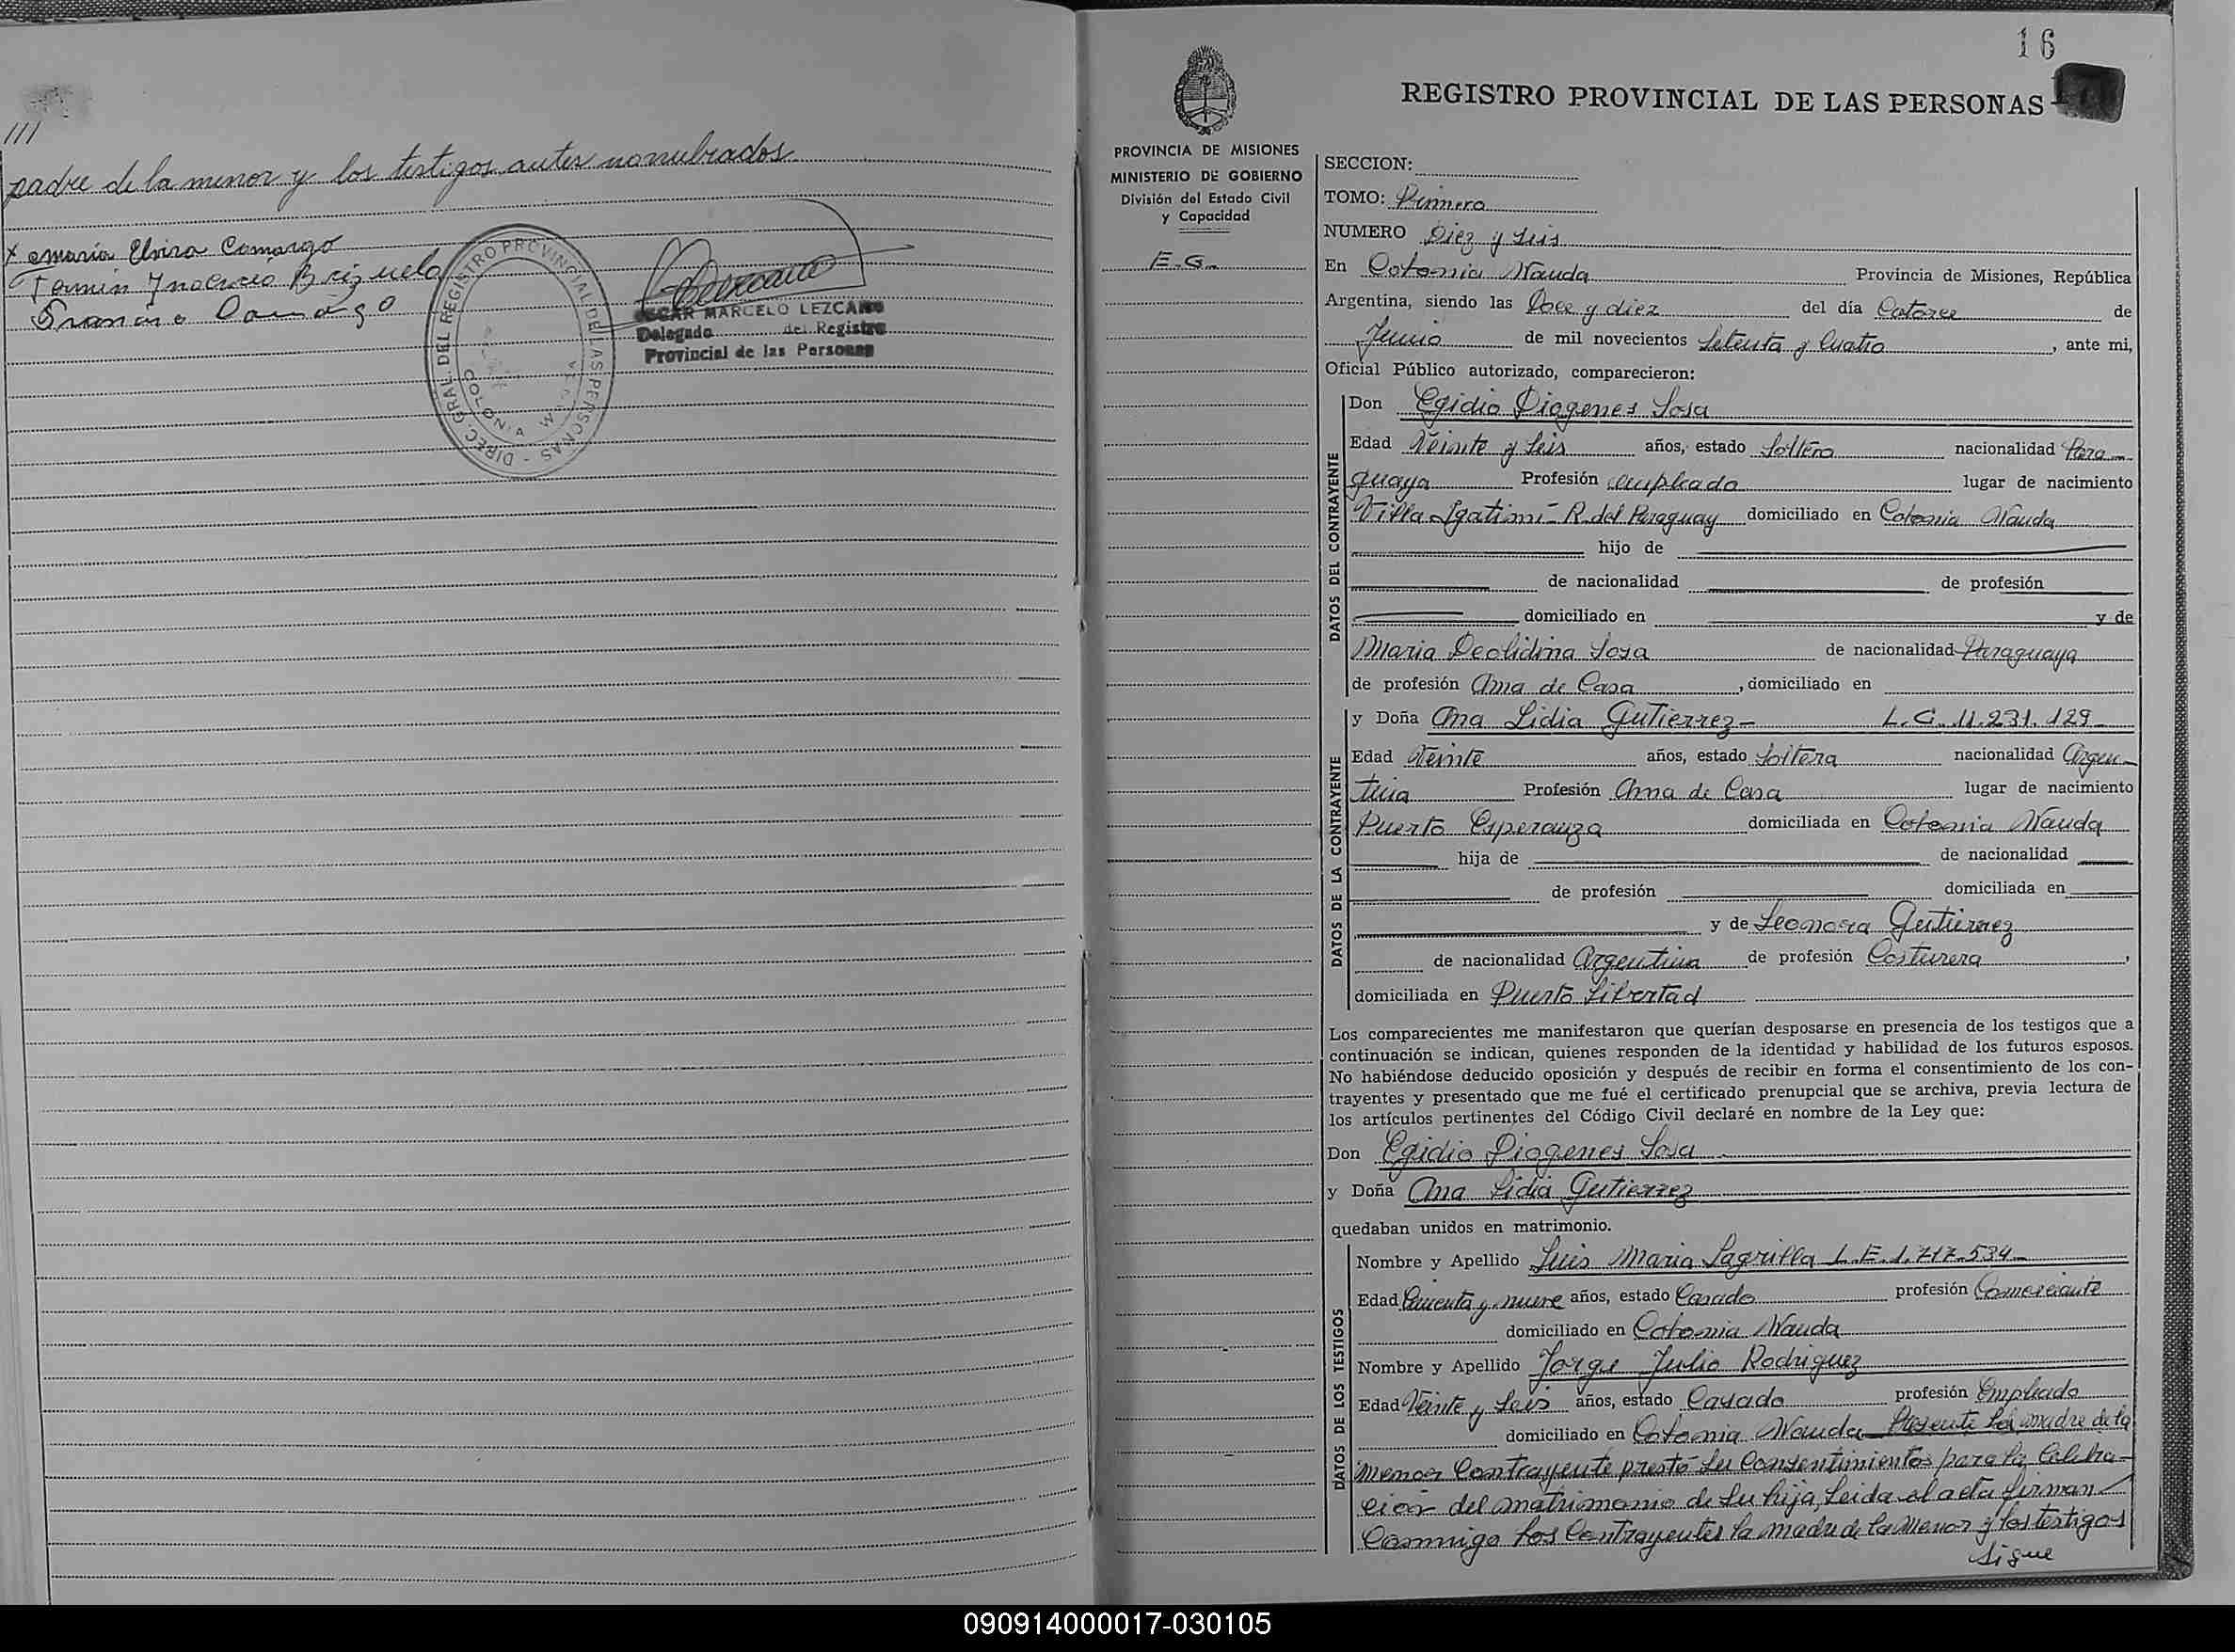 ///
padre de la menor y los testigos antes nombrados
x Maria Elvira Camargo
Fermin Inocencio Brizuela
Francisco Camargo
DIREC. GRAL DEL REGISTRO PROVINCIAL DE LAS PERSONAS -
COLONIA WANDA
OSCAR MARCELO LEZCANO
Delegado del Registro
Provincial de las Personas
16
REGISTRO PROVINCIAL DE LAS PERSONAS
PROVINCIA DE MISIONES
MINISTERIO DE GOBIERNO
División del Estado Civil
y Capacidad
E.G.
SECCION:
TOMO: Primero
NUMERO Diez y Seis
En Colonia Wanda Provincia de Misiones, República
Argentina, siendo las Doce y diez del día Catorce de
Junio de mil novecientos Setenta y Cuatro, ante mi,
Oficial Público autorizado, comparecieron:
DATOS DEL CONTRAYENTE
Don Egidio Diogenes Sosa
Edad Veinte y Seis años, estado Soltero nacionalidad Para-
guaya Profesión empleado lugar de nacimiento
Villa Igatimi - R. del Paraguay domiciliado en Colonia Wanda
hijo de
de nacionalidad de profesión
domiciliado en y de
Maria Deolidina Sosa de nacionalidad Paraguaya
de profesión Ama de Casa, domiciliado en
DATOS DE LA CONTRAYENTE
y Doña Ana Lidia Gutierrez - L.C. 11.231.129
Edad Veinte años, estado Soltera nacionalidad Argen-
tina Profesión Ama de Casa lugar de nacimiento
Puerto Esperanza domiciliada en Colonia Wanda
hija de de nacionalidad
de profesión domiciliada en
y de Leonora Gutierrez
de nacionalidad Argentina de profesión Costurera,
domiciliada en Puerto Libertad
Los comparecientes me manifestaron que querían desposarse en presencia de los testigos que a
continuación se indican, quienes responden de la identidad y habilidad de los futuros esposos.
No habiéndose deducido oposición y después de recibir en forma el consentimiento de los con-
trayentes y presentado que me fué el certificado prenupcial que se archiva, previa lectura de
los artículos pertinentes del Código Civil declaré en nombre de la Ley que:
Don Egidio Diogenes Sosa
y Doña Ana Lidia Gutierrez
quedaban unidos en matrimonio.
DATOS DE LOS TESTIGOS
Nombre y Apellido Luis Maria Lagrilla L.E. 1.717.534
Edad y nueve años, estado Casado profesión Comerciante
domiciliado en Colonia Wanda
Nombre y Apellido Jorge Julio Rodriguez
Edad Veinte y Seis años, estado Casado profesión Empleado
domiciliado en Colonia Wanda - Presente la madre de la
menor Contrayente prestó su Consentimientos para la Celebra-
ción del matrimonio de su hija, Leida el acta firman
Conmigo los Contrayentes la madre de la Menor y los testigos
Sigue
090914000017-030105